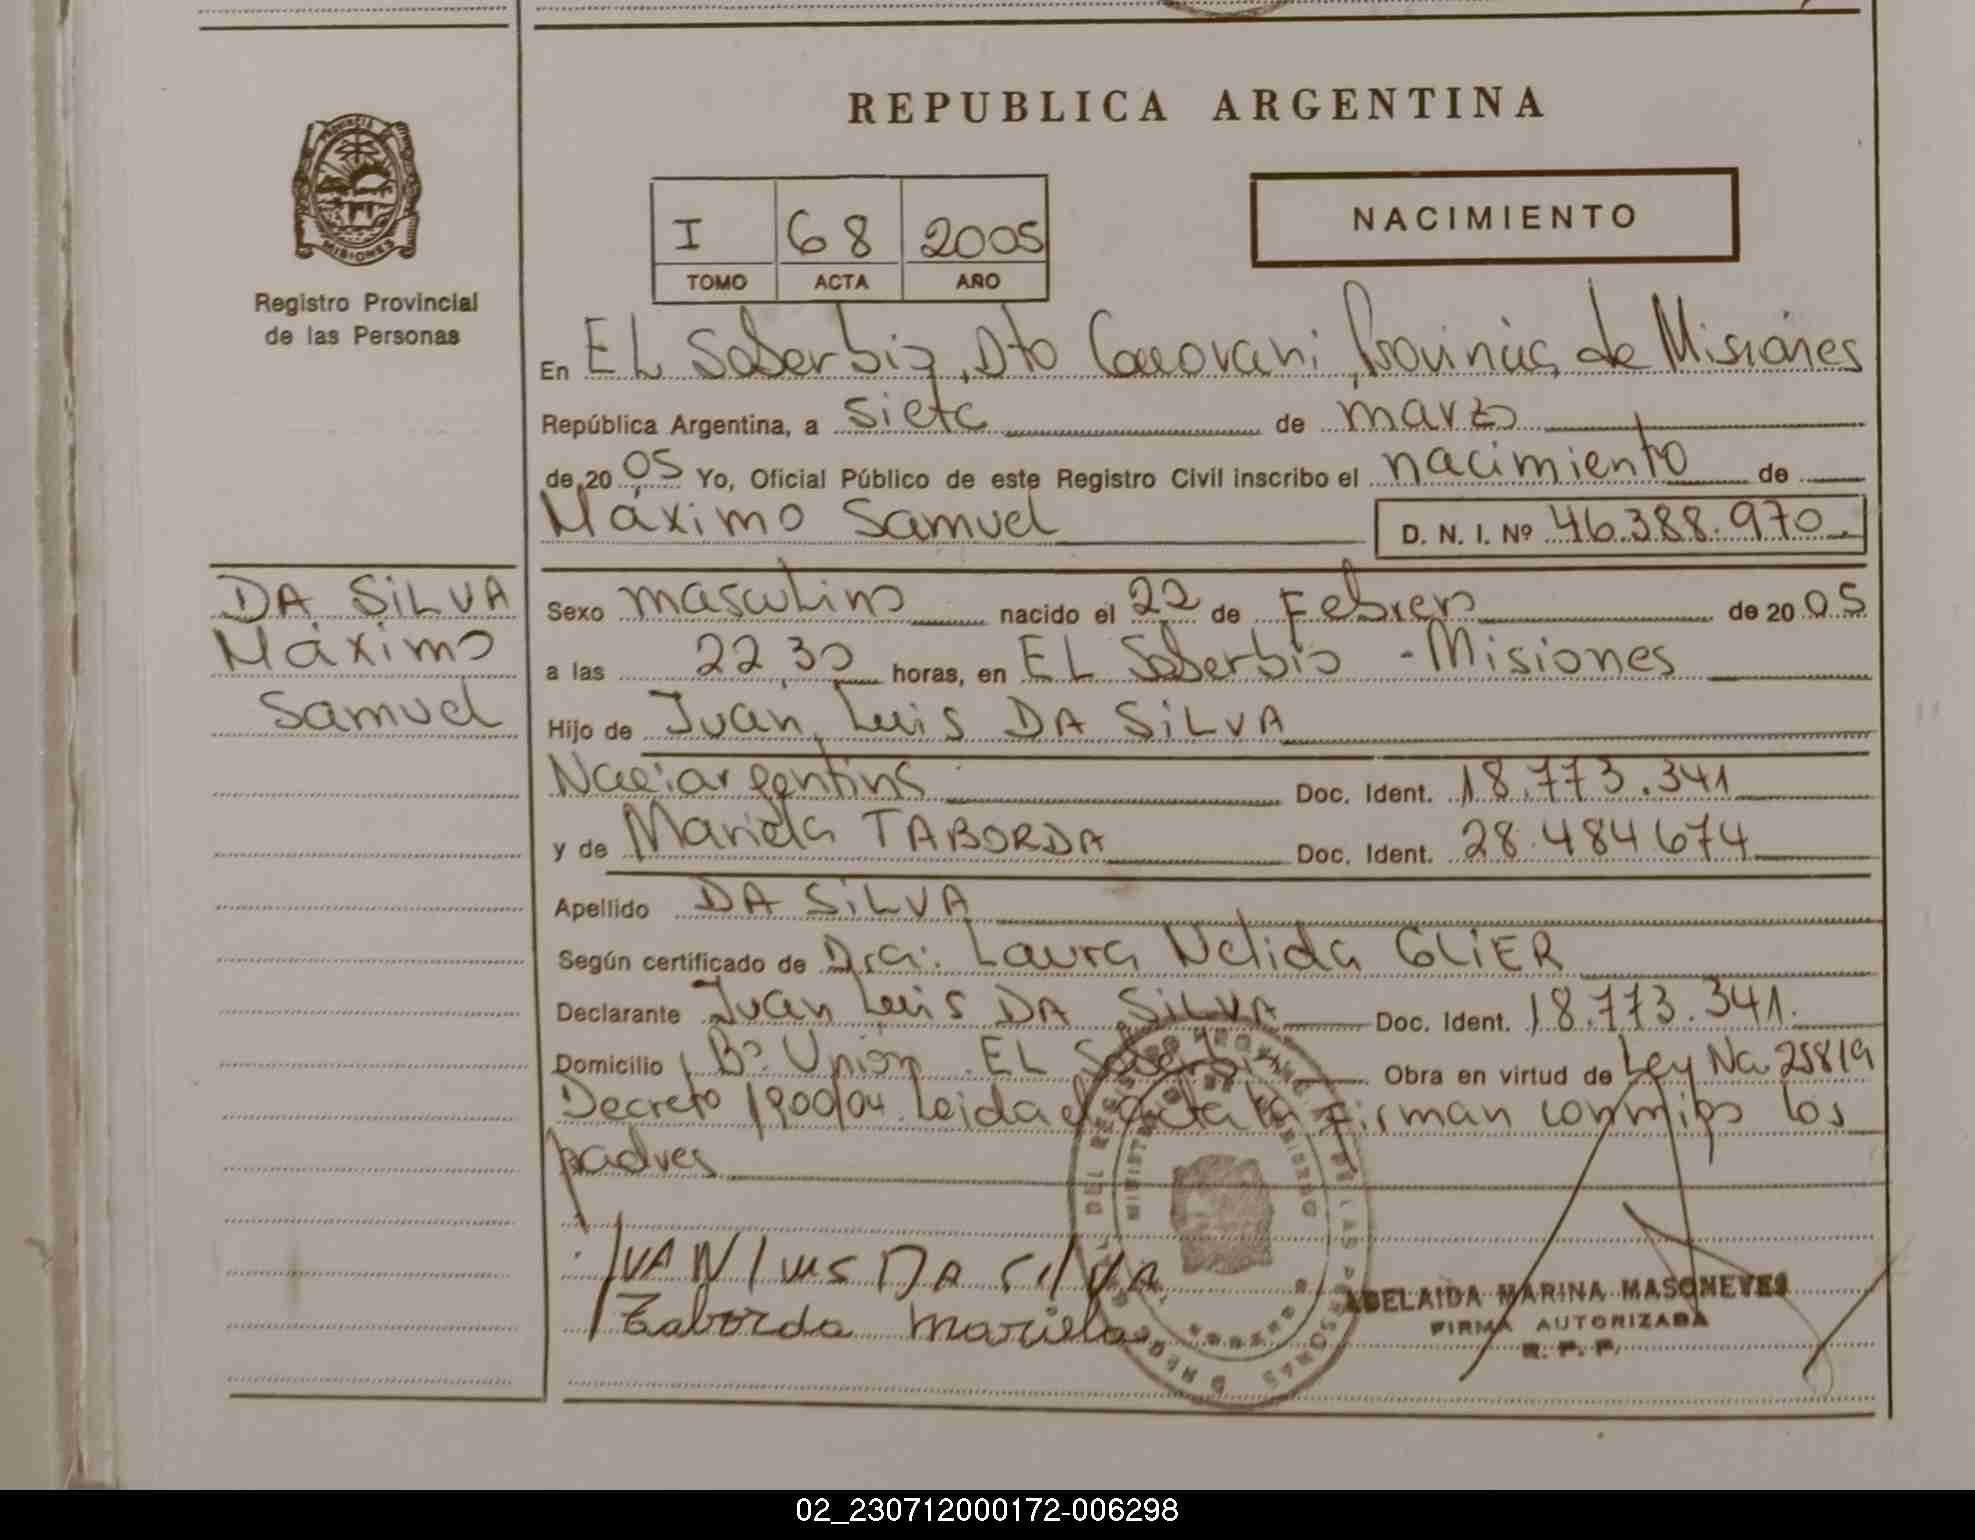 REPUBLICA ARGENTINA
PROVINCIA
MISIONES
Registro Provincial
de las Personas
I 68 2005
TOMO ACTA AÑO
NACIMIENTO
En EL Soberbio, Dto Provincia de Misiones
República Argentina, a siete de marzo
de 20 05 Yo, Oficial Público de este Registro Civil inscribo el nacimiento de
Máximo Samuel D. N. I. Nº 46.388.970.
DA SiLVA
Máximo
Samuel
Sexo masculino nacido el 22 de Febrero de 20 05
a las 22,30 horas, en EL Soberbio - Misiones
Hijo de Juan Luis DA SiLVA
argentino Doc. Ident. 18.773.341
y de Mariela TABORDA Doc. Ident. 28.484674
Apellido DA SiLVA
Según certificado de Dra. Laura Nelida GLiER
Declarante Juan Luis DA SiLVA Doc. Ident. 18.773.341.
Domicilio Bº Unión EL Soberbio Obra en virtud de Ley No 25819
Decreto 1900/04. Leida el acta la firman conmigo los
padres
JUAN LUIS DA SILVA
Taborda Mariela
ADELAIDA MARINA MASONEVES
FIRMA AUTORIZADA
R. P. P.
02_230712000172-006298